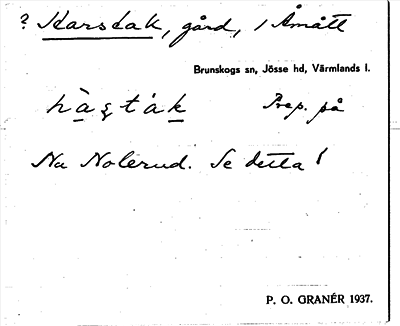 ? Karstak, gård, / Åmått
Brunskogs sn, Jösse hd, Värmlands l.
Prep. på
Na Nolerud. Se detta!
P. O. GRANÉR 1937.